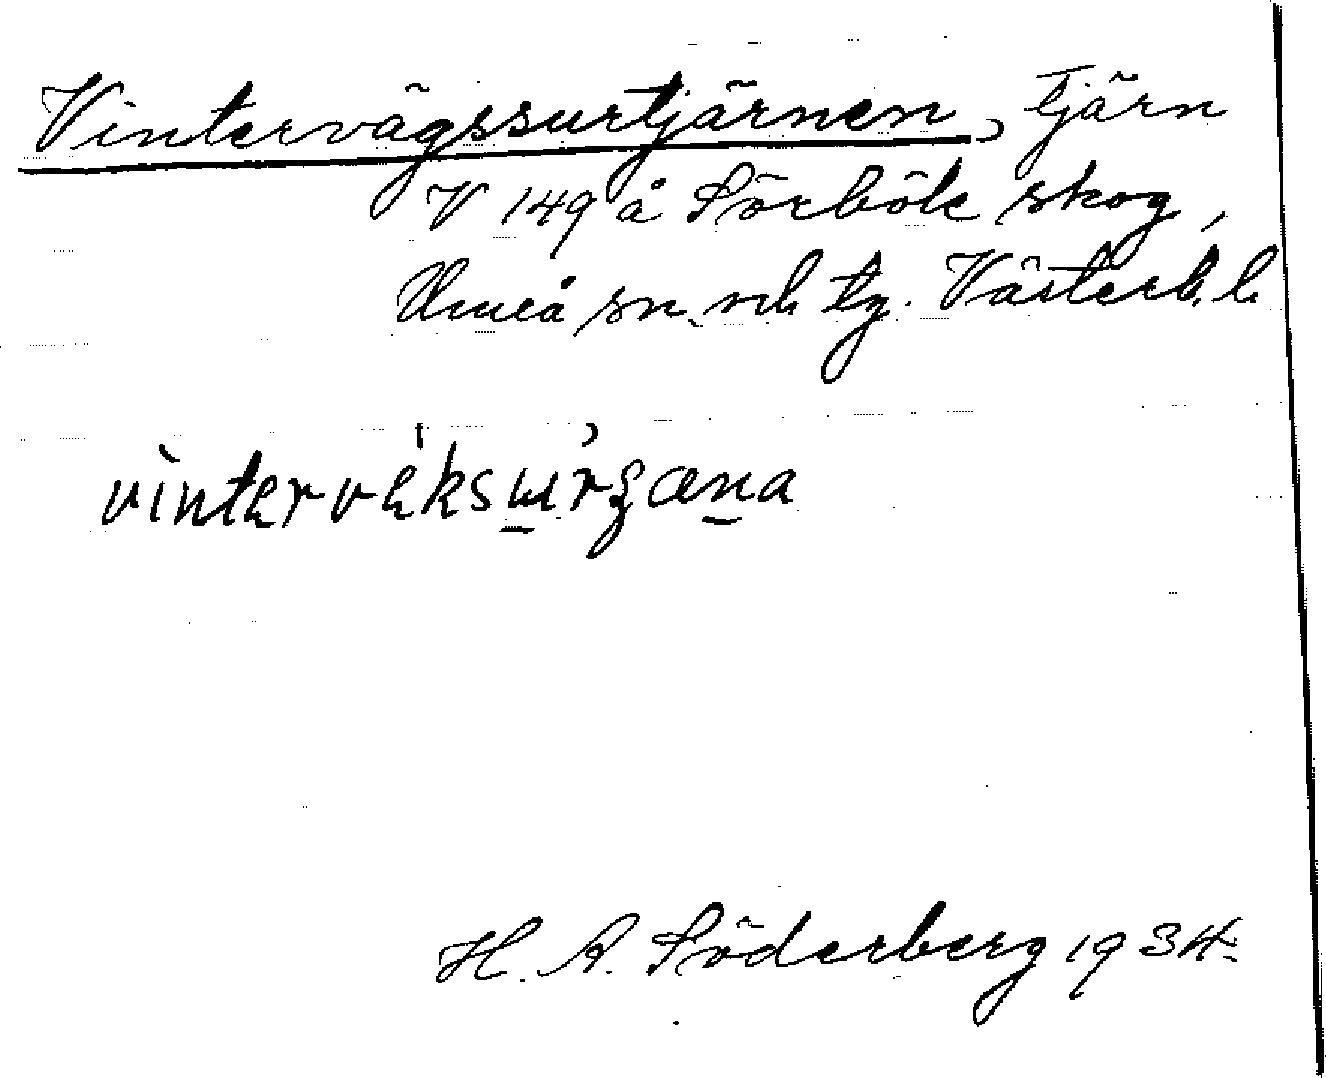 Vintervägssurtjärnen, tjärn
V 149 å Sörböle skog,
Umeå sn och tg. Västerb. l.
H. A. Söderberg 1934.